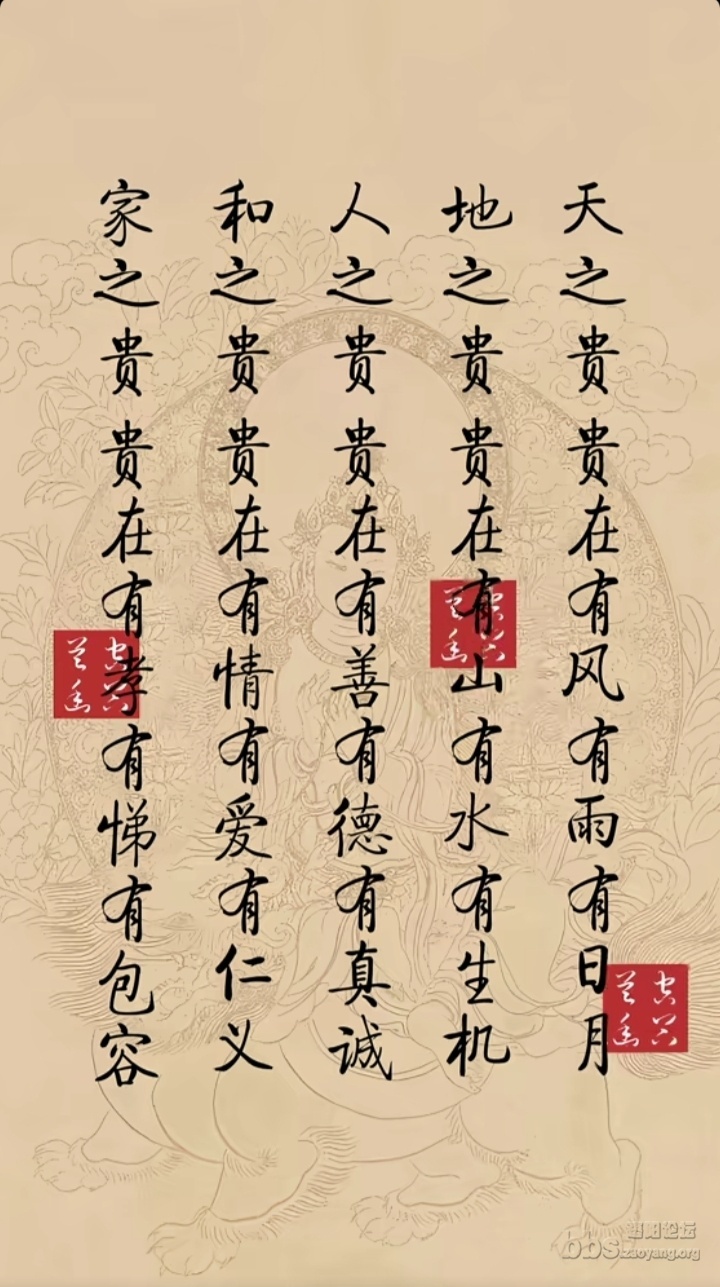 天之贵贵在有风有雨有日月
地之贵贵在有山有水有生机
人之贵贵在有善有德有真诚
和之贵贵在有情有爱有仁义
家之贵贵在有孝有悌有包容
bbs.izaoyang.org